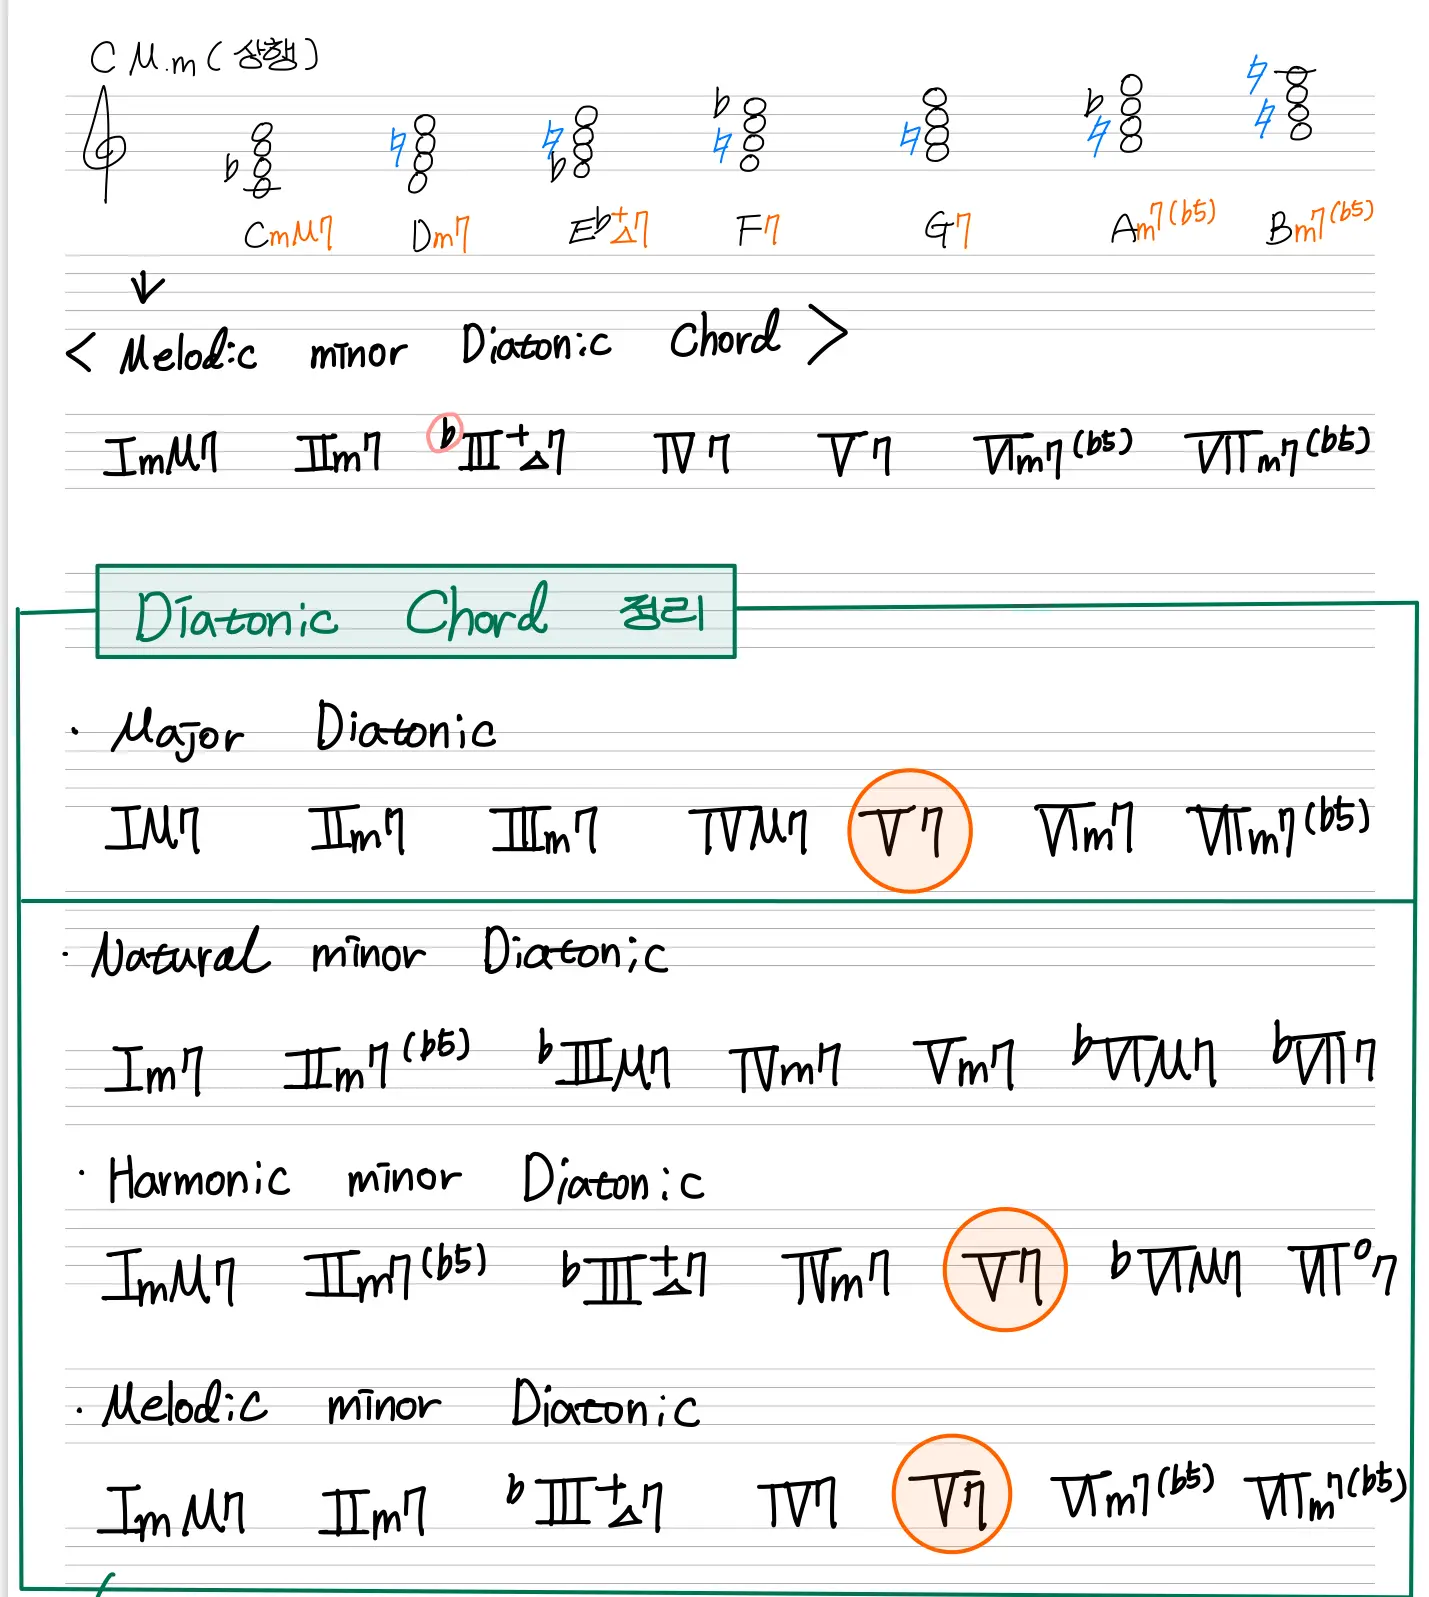 C M.m (상행)
CmM7 Dm7 E♭+△7 F7 G7 Am7(b5) Bm7(b5)
< Melodic minor Diatonic Chord >
ⅠmM7 Ⅱm7 ♭Ⅲ+△7 Ⅳ7 Ⅴ7 Ⅵm7(b5) Ⅶm7(b5)
Diatonic Chord 정리
· Major Diatonic
ⅠM7 Ⅱm7 Ⅲm7 ⅣM7 Ⅴ7 Ⅵm7 Ⅶm7(b5)
· Natural minor Diatonic
Ⅰm7 Ⅱm7(b5) ♭ⅢM7 Ⅳm7 Ⅴm7 ♭ⅥM7 ♭Ⅶ7
· Harmonic minor Diatonic
ⅠmM7 Ⅱm7(b5) ♭Ⅲ+△7 Ⅳm7 Ⅴ7 ♭ⅥM7 Ⅶo7
· Melodic minor Diatonic
ⅠmM7 Ⅱm7 ♭Ⅲ+△7 Ⅳ7 Ⅴ7 Ⅵm7(b5) Ⅶm7(b5)